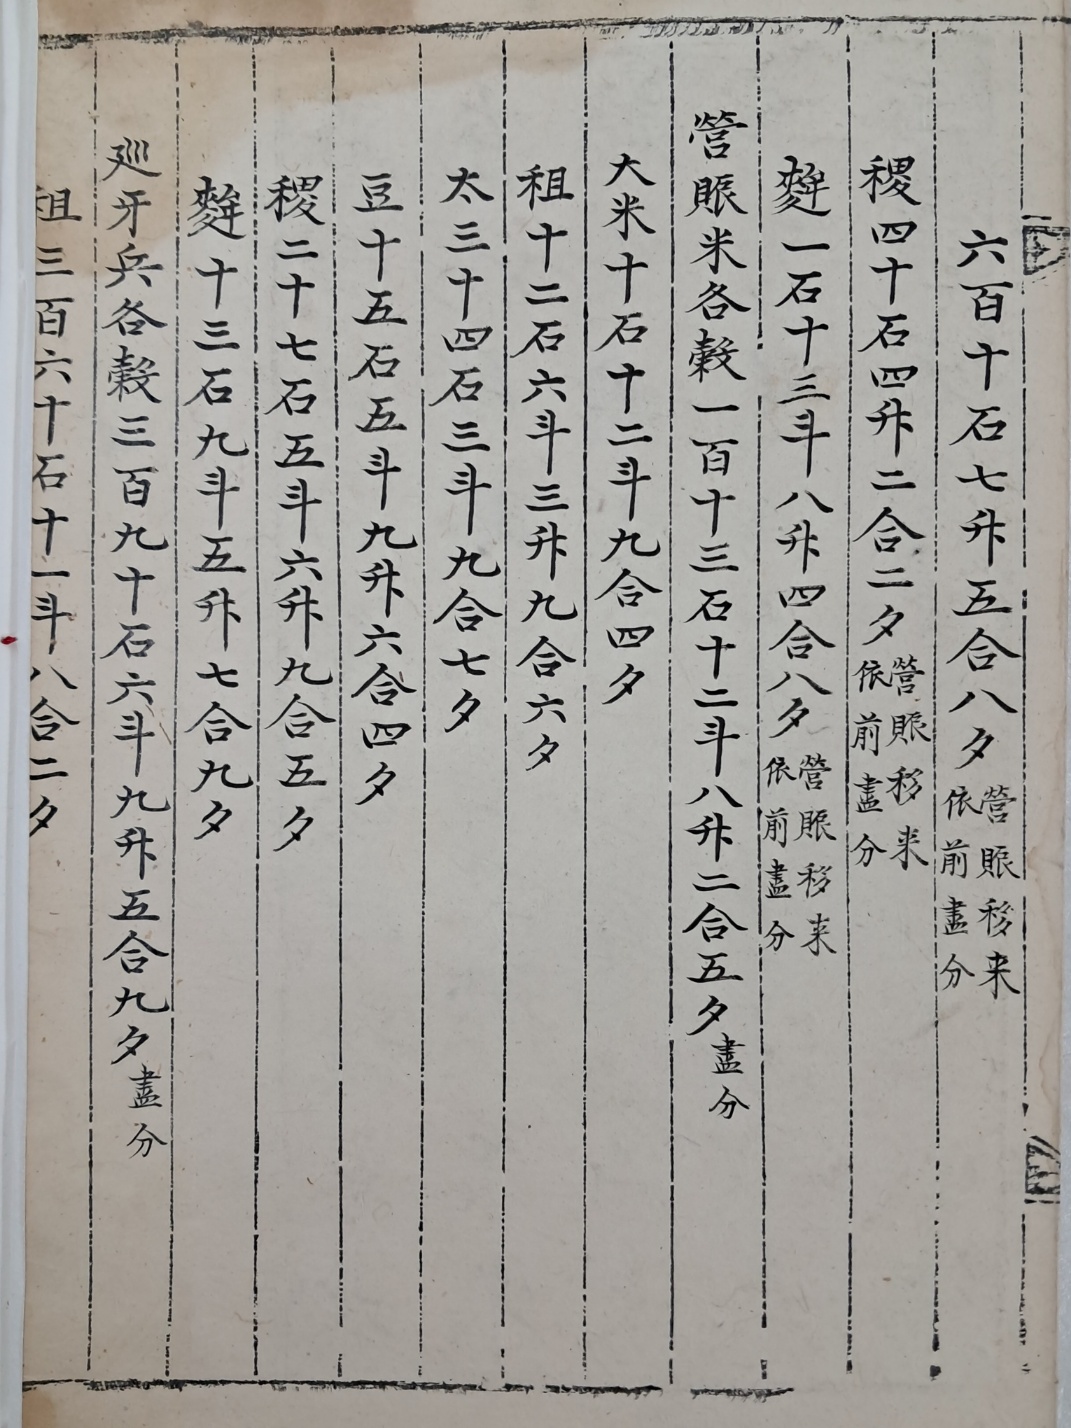 六百十石七升五合八夕營賑移来依前盡分
稷四十石四升二合二夕營賑移来依前盡分
䴬一石十三斗八升四合八夕營賑移来依前盡分
營賑米各穀一百十三石十二斗八升二合五夕盡分
大米十石十二斗九合四夕
租十二石六斗三升九合六夕
太三十四石三斗九合七夕
豆十五石五斗九升六合四夕
稷二十七石五斗六升九合五夕
䴬十三石九斗五升七合九夕
廵牙兵各穀三百九十石六斗九升五合九夕盡分
租三百六十石十一斗八合二夕